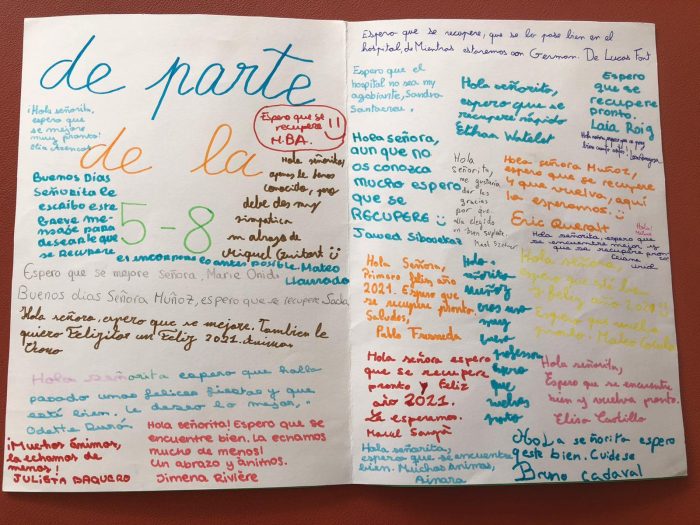 de parte
de la
5-8
¡Hola señorita,
espero que
se mejore
muy pronto!
Espero que se
recupere
M.BA.
Buenos Días
Señorita le
escribo este
breve men-
saje para
desearle que
se recupere
lo antes posible. Mateo
Hola señorita,
debe de ser muy
simpatica
un abrazo de
Miquel Guitart
Espero que se mejore señora, Marie
Buenos días Señora Muñoz, espero que se recupere
Hola señora, espero que se mejore. Tambien le
quiero un Feliz 2021.
Hola señorita espero que halla
pasado unas felices fiestas y que
esté bien. Le deseo lo mejor,
Odette Durán
¡Muchos ánimos,
la echamos de
menos!
JULIETA BAQUERO
Hola señorita! Espero que se
encuentre bien. La echamos
mucho de menos!
Un abrazo y ánimos.
Jimena Rivière
Espero que se recupere, que se lo pase bien en el
hospital, de Mientras estaremos con German. De Lucas Font
Espero que el
hospital no sea muy
agobiante, Sandra
Hola señorito,
espero que se
recupere rápido
Ethan Watelet
Espero
que se
recupere
pronto.
Laia Roig
Hola señora,
aunque no
os conozca
mucho espero
que se
RECUPERE
Jawed
Hola
señorita,
me gustaria
dar les
gracias
por que
ha elegido
un buen suplente.
Hola señora Muñoz,
espero que se recupere
y que vuelva, aquí
la esperamos.
Eric Queralt
Hola señorita, espero que
se encuentre mejor, y
que se recupere pronto
Hola Señora,
Primero feliz año
2021. Espero que
se recupere pronto.
Saludos,
Pablo
Hola
señorita
Muñoz
eres una
muy
buena
profesora
espero
que
vuelvas
pronto
espero que esté bien
y feliz año 2021
Espero que vuelva
pronto! Mateo
Hola señora espero
que se recupere
pronto y Feliz
año 2021.
La esperamos.
Hola señorita,
Espero que se encuentre
bien y vuelva pronto.
Elisa Castillo
Hola señorita,
espero que se encuentre
bien. Muchos ánimos,
Ainara
Hola señorita espero
q esté bien. Cuidese
Bruno Cadaval